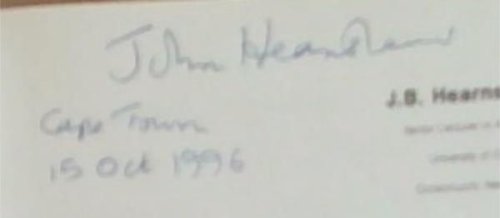 John Hearnshaw
Cape Town
15 Oct 1996
J.B. Hearns